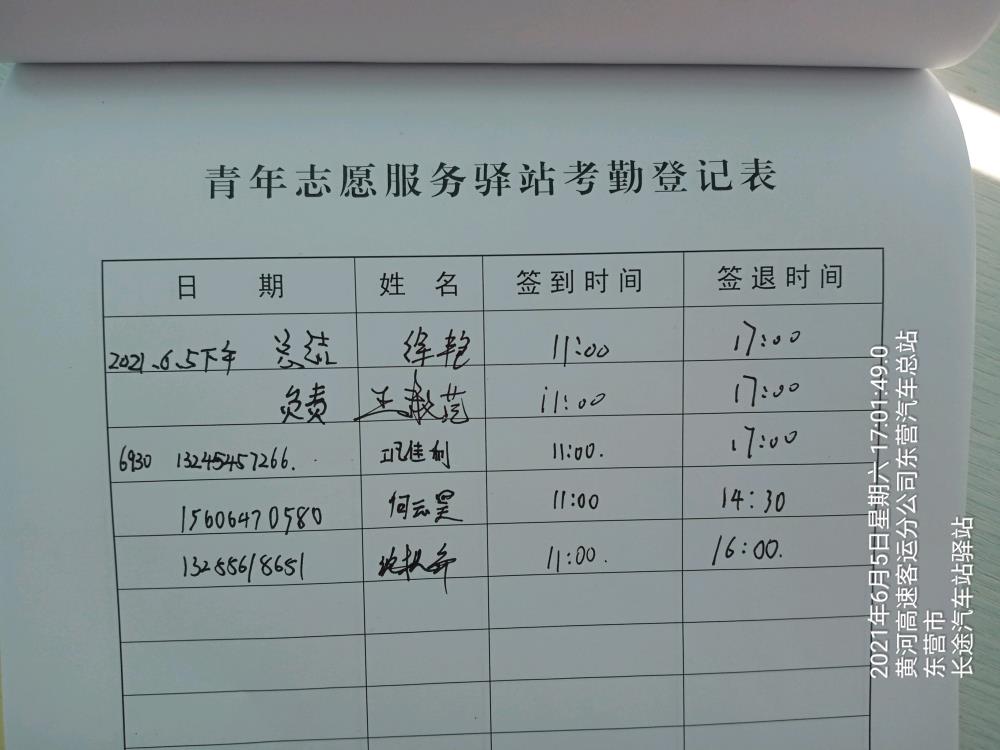 青年志愿服务驿站考勤登记表
日 期 姓 名 签到时间 签退时间
2021.6.5下午 总结 徐艳 11:00 17:00
负责 王敬范 11:00 17:00
6930 13245457266. 佳利 11:00. 17:00
15606470580 何云昊 11:00 14:30
13255618651 11:00. 16:00.
2021年6月5日星期六 17:01:49.0
黄河高速客运分公司东营汽车总站
东营市
长途汽车站驿站